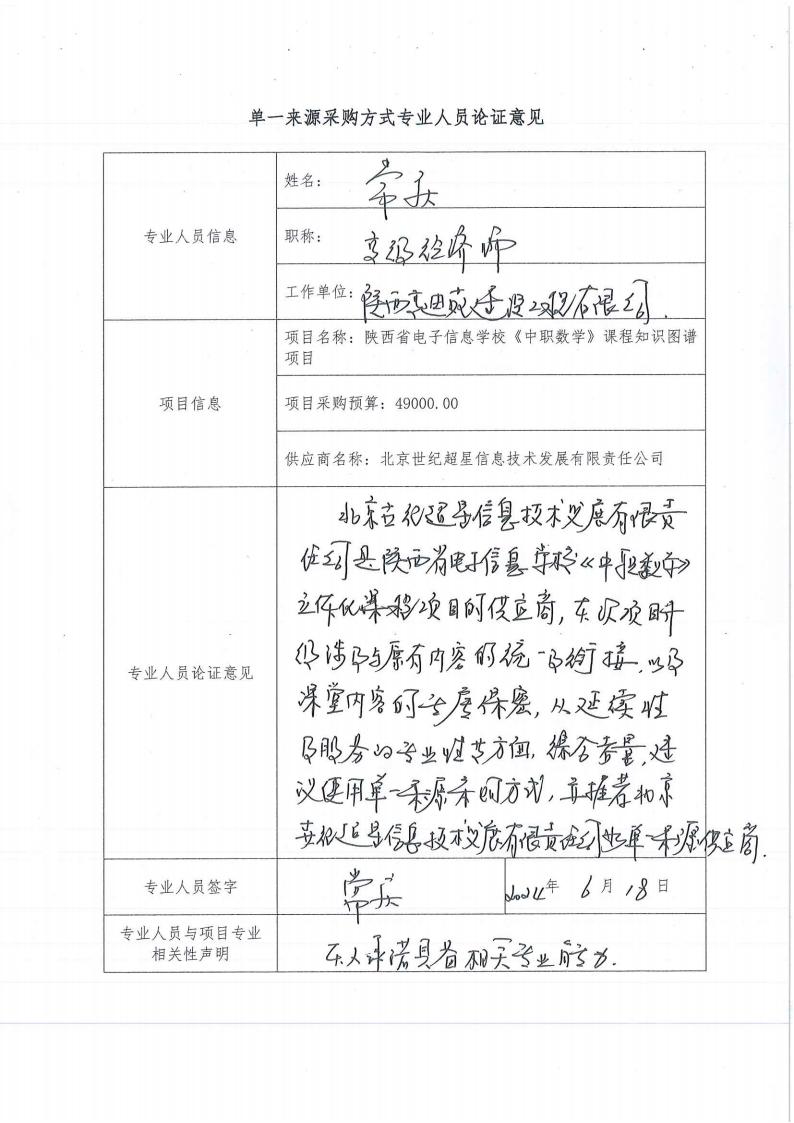 单一来源采购方式专业人员论证意见
专业人员信息
姓名：常庆
职称：高级经济师
工作单位：陕西高迪 建设工程有限公司.
项目信息
项目名称：陕西省电子信息学校《中职数学》课程知识图谱
项目
项目采购预算：49000.00
供应商名称：北京世纪超星信息技术发展有限责任公司
专业人员论证意见
北京世纪超星信息技术发展有限责
任公司是陕西省电子信息学校《中职数学》
立体化课程项目的供应商，本次项目升
级涉及与原有内容的统一及衔接，以及
课堂内容的 度保密，从延续性
及服务的专业性等方面，综合考量，建
议使用单一来源采购方式，并推荐北京
世纪超星信息技术发展有限责任公司为单一来源供应商.
专业人员签字
常庆
2024年 6月 18日
专业人员与项目专业
相关性声明
本人承诺具备相关专业能力.